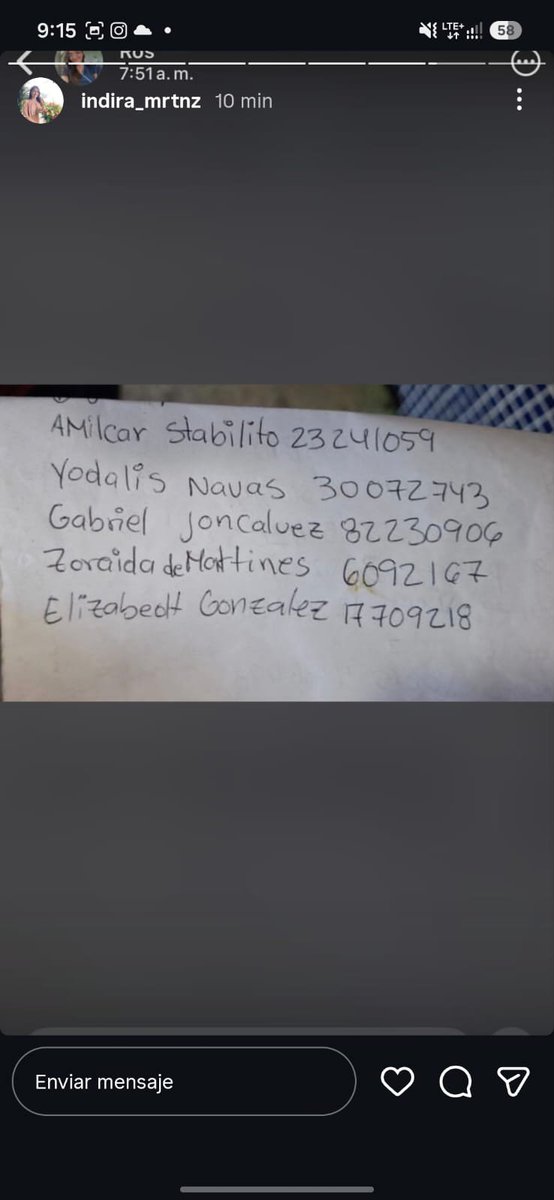 9:15 LTE+ 58
RUS
7:51 a. m.
indira_mrtnz 10 min
AMilcar Stabilito 23241059
Yodalis Navas 30072743
Gabriel Joncalvez 82230906
Zoraida de Mattines 6092167
Elizabedt Gonzalez 17709218
Enviar mensaje